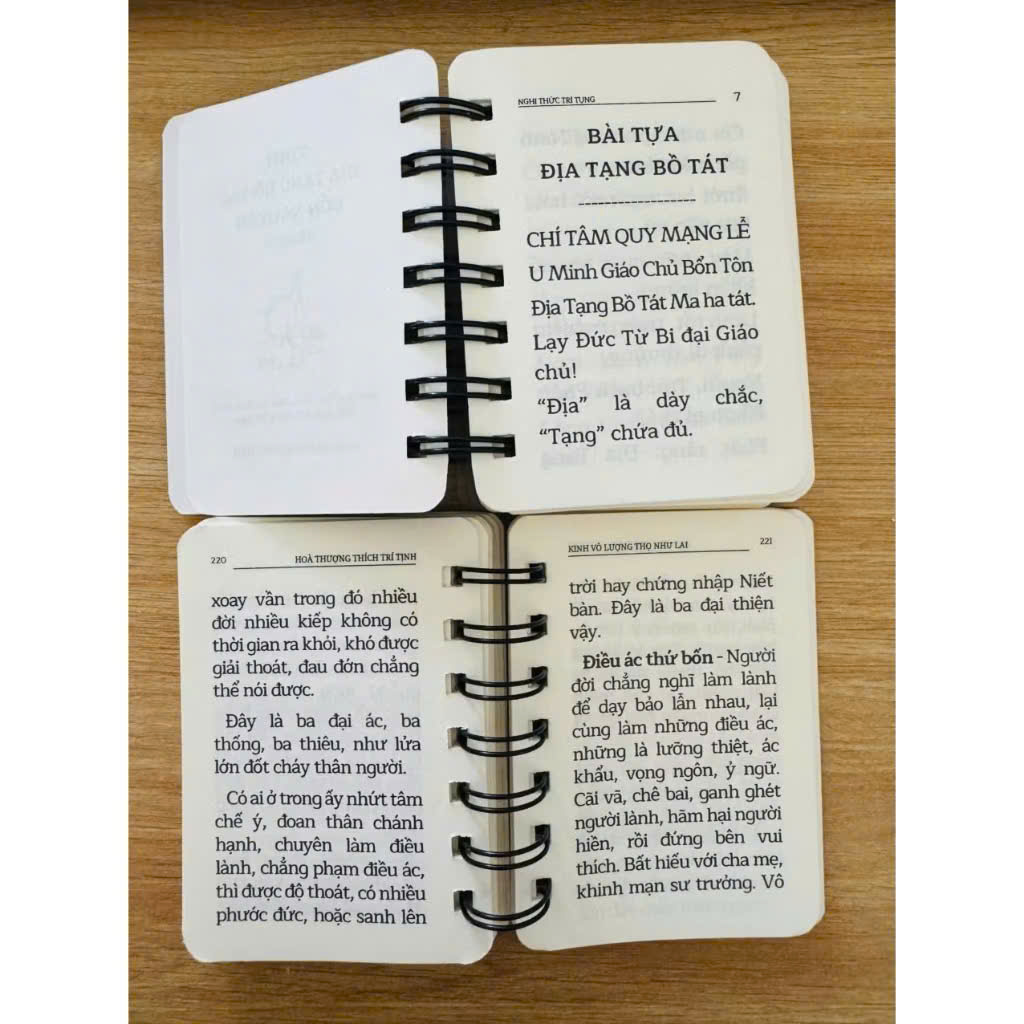 NGHI THỨC TRÌ TỤNG 7
BÀI TỰA
ĐỊA TẠNG BỒ TÁT
CHÍ TÂM QUY MẠNG LỄ
U Minh Giáo Chủ Bổn Tôn
Địa Tạng Bồ Tát Ma ha tát.
Lạy Đức Từ Bi đại Giáo
chủ!
“Địa” là dày chắc,
“Tạng” chứa đủ.
220 HOÀ THƯỢNG THÍCH TRÍ TỊNH
xoay vần trong đó nhiều
đời nhiều kiếp không có
thời gian ra khỏi, khó được
giải thoát, đau đớn chẳng
thể nói được.
Đây là ba đại ác, ba
thống, ba thiêu, như lửa
lớn đốt cháy thân người.
Có ai ở trong ấy nhứt tâm
chế ý, đoan thân chánh
hạnh, chuyên làm điều
lành, chẳng phạm điều ác,
thì được độ thoát, có nhiều
phước đức, hoặc sanh lên
KINH VÔ LƯỢNG THỌ NHƯ LAI 221
trời hay chứng nhập Niết
bàn. Đây là ba đại thiện
vậy.
Điều ác thứ bốn - Người
đời chẳng nghĩ làm lành
để dạy bảo lẫn nhau, lại
cùng làm những điều ác,
những là lưỡng thiệt, ác
khẩu, vọng ngôn, ỷ ngữ.
Cãi vã, chê bai, ganh ghét
người lành, hãm hại người
hiền, rồi đứng bên vui
thích. Bất hiếu với cha mẹ,
khinh mạn sư trưởng. Vô